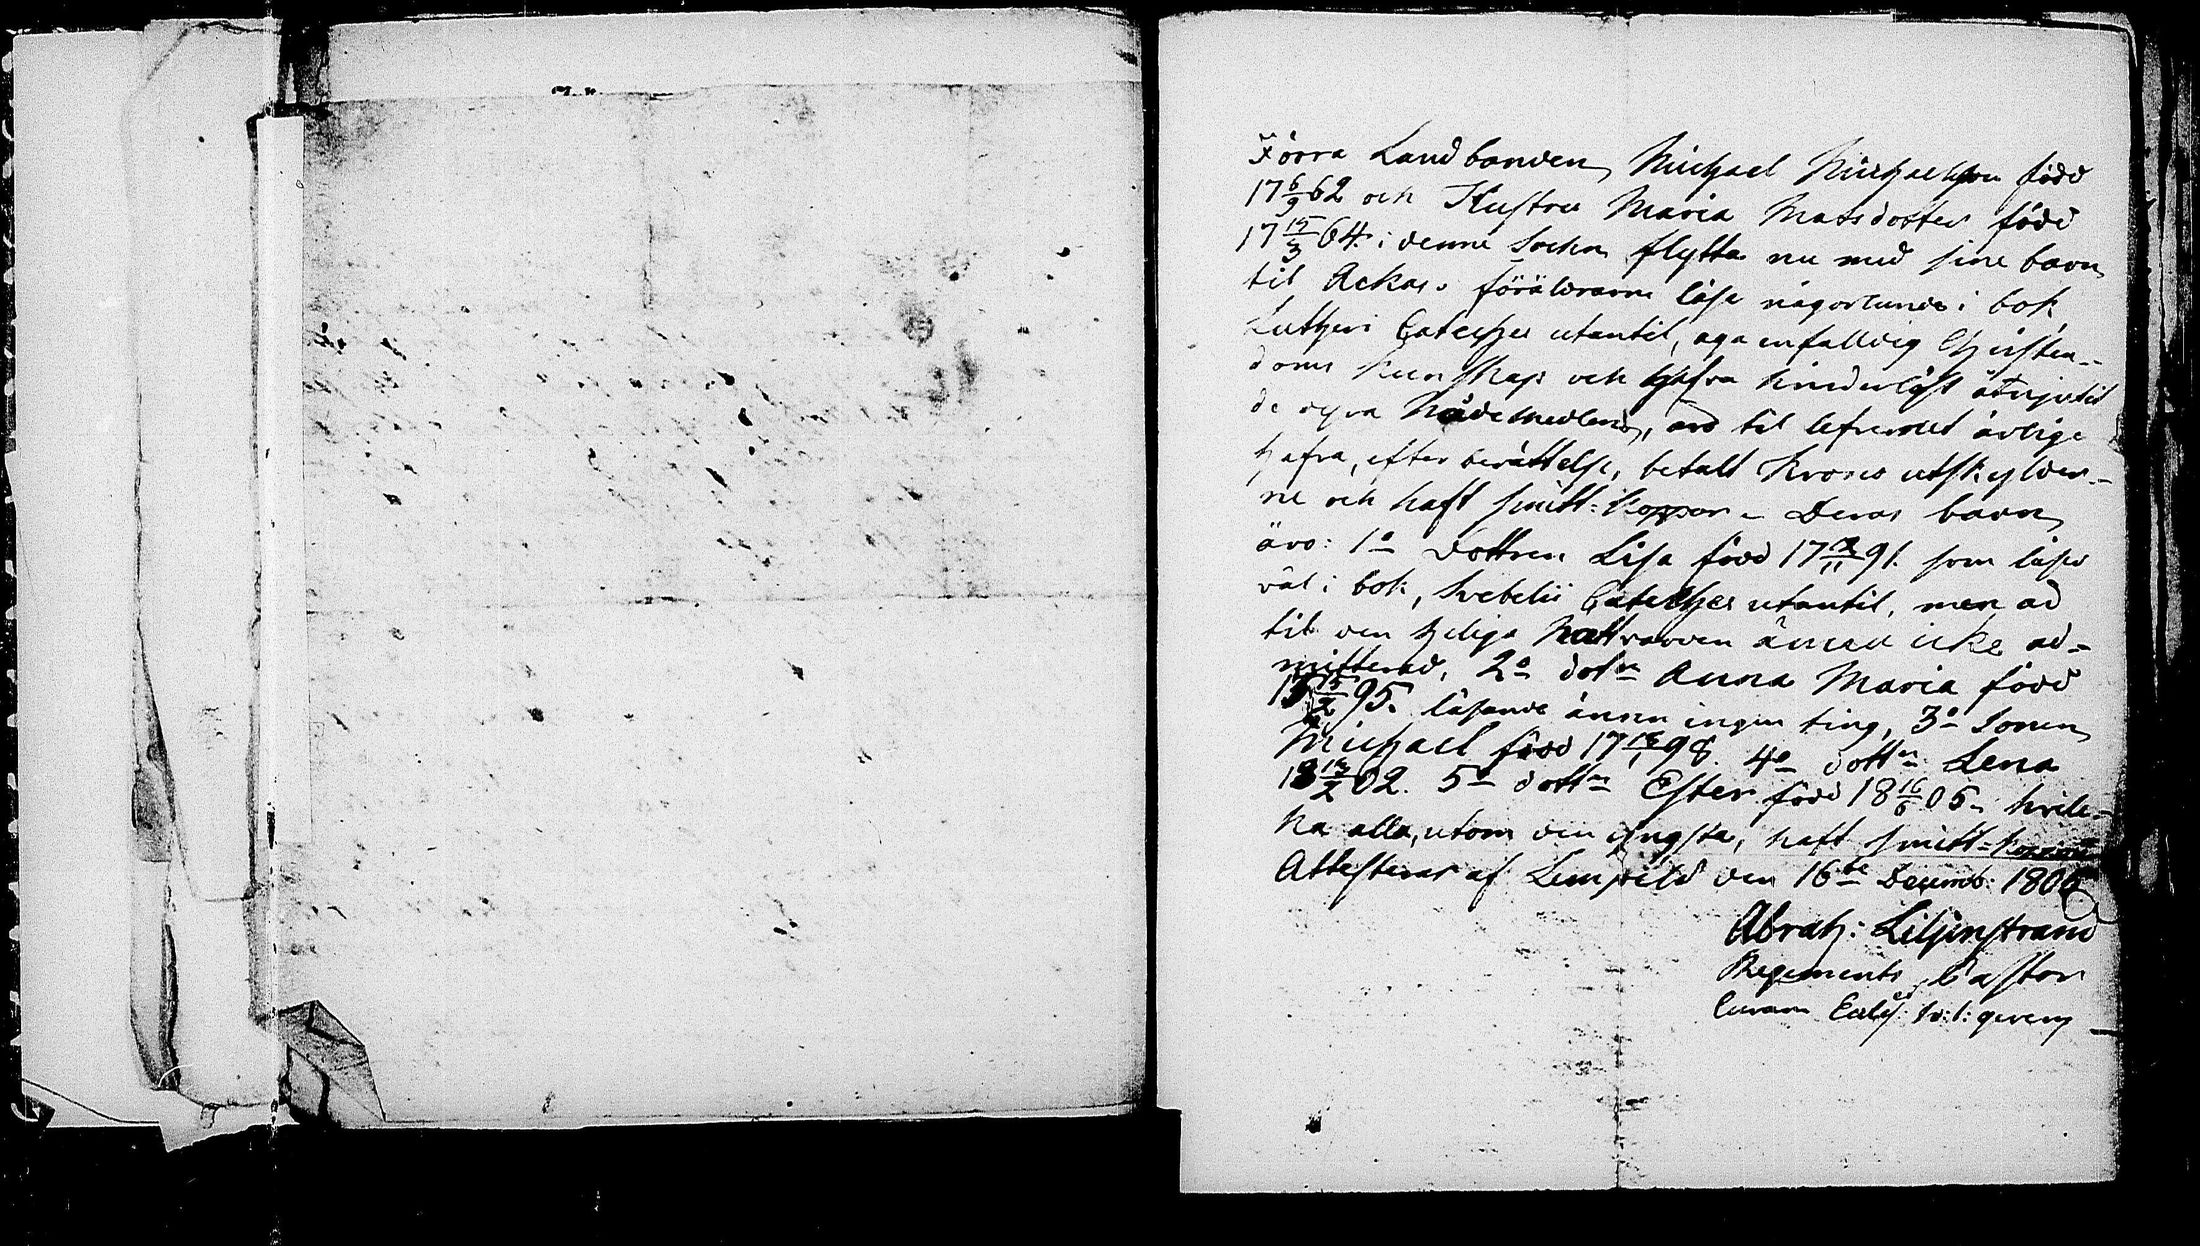 Förra Landbonden Michael Michaelsson född
17 6/9 62 och Hustru Maria Matsdotter född
17 15/3 64. i denne Sochn flytta nu med sine barn
til Ackas. föräldrarne läsa någorlunda i bok
Lutheri Cateches utantil, äga enfalldig Christen-
doms kunskap och hafva hinderlöst åtnjutit
de dyra Nådemedlen, äro til lefvernet ärlige
hafva, efter berättelse, betalt Krono utskylder-
ne och haft smitt-koppor. Deras barn
äro: 1o dottren Lisa född 17 /11 91. som läser
väl i bok, Svebelii Cateches utantil, men ad
til den heliga Nattvarden ännu icke ad-
mitterad, 2o dotn Anna Maria född
17 15/2 95. läsande ännu ingen ting, 3o Sonen
Michael född 17 /1 98. 4o dottn Lena
18 /2 02. 5o dottn Ester född 18 16/6 05. hvil-
ka alla, utom den yngsta, haft smitt-koppor
Attesteras af Lempälä den 16de Decemb: 1806
Abrah: Liljenstrand
Regements Pastor
curam Eccles: gerens